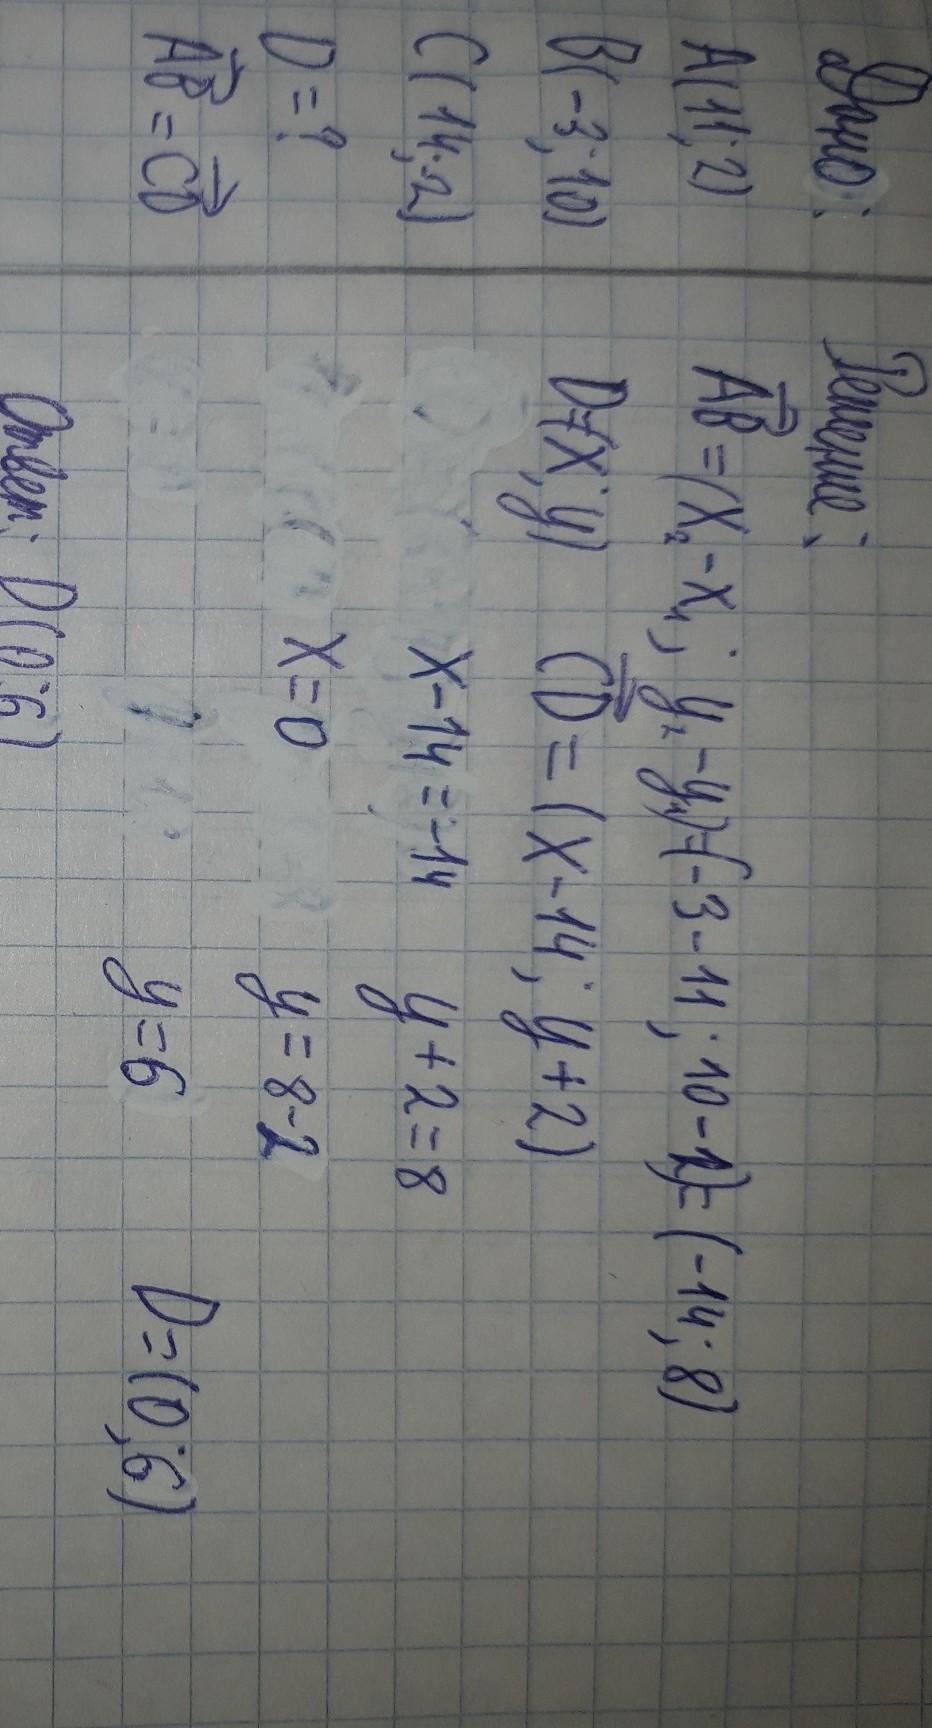 Дано:
A(11;2)
B(-3;10)
C(14;-2)
D=?
AB=CD
Решение:
AB=(x₂-x₁; y₂-y₁)=(-3-11; 10-2)=(-14; 8)
D=(x;y) CD=(x-14; y+2)
x-14=-14 y+2=8
x=0 y=8-2
y=6 D=(0;6)
Ответ: D(0;6)